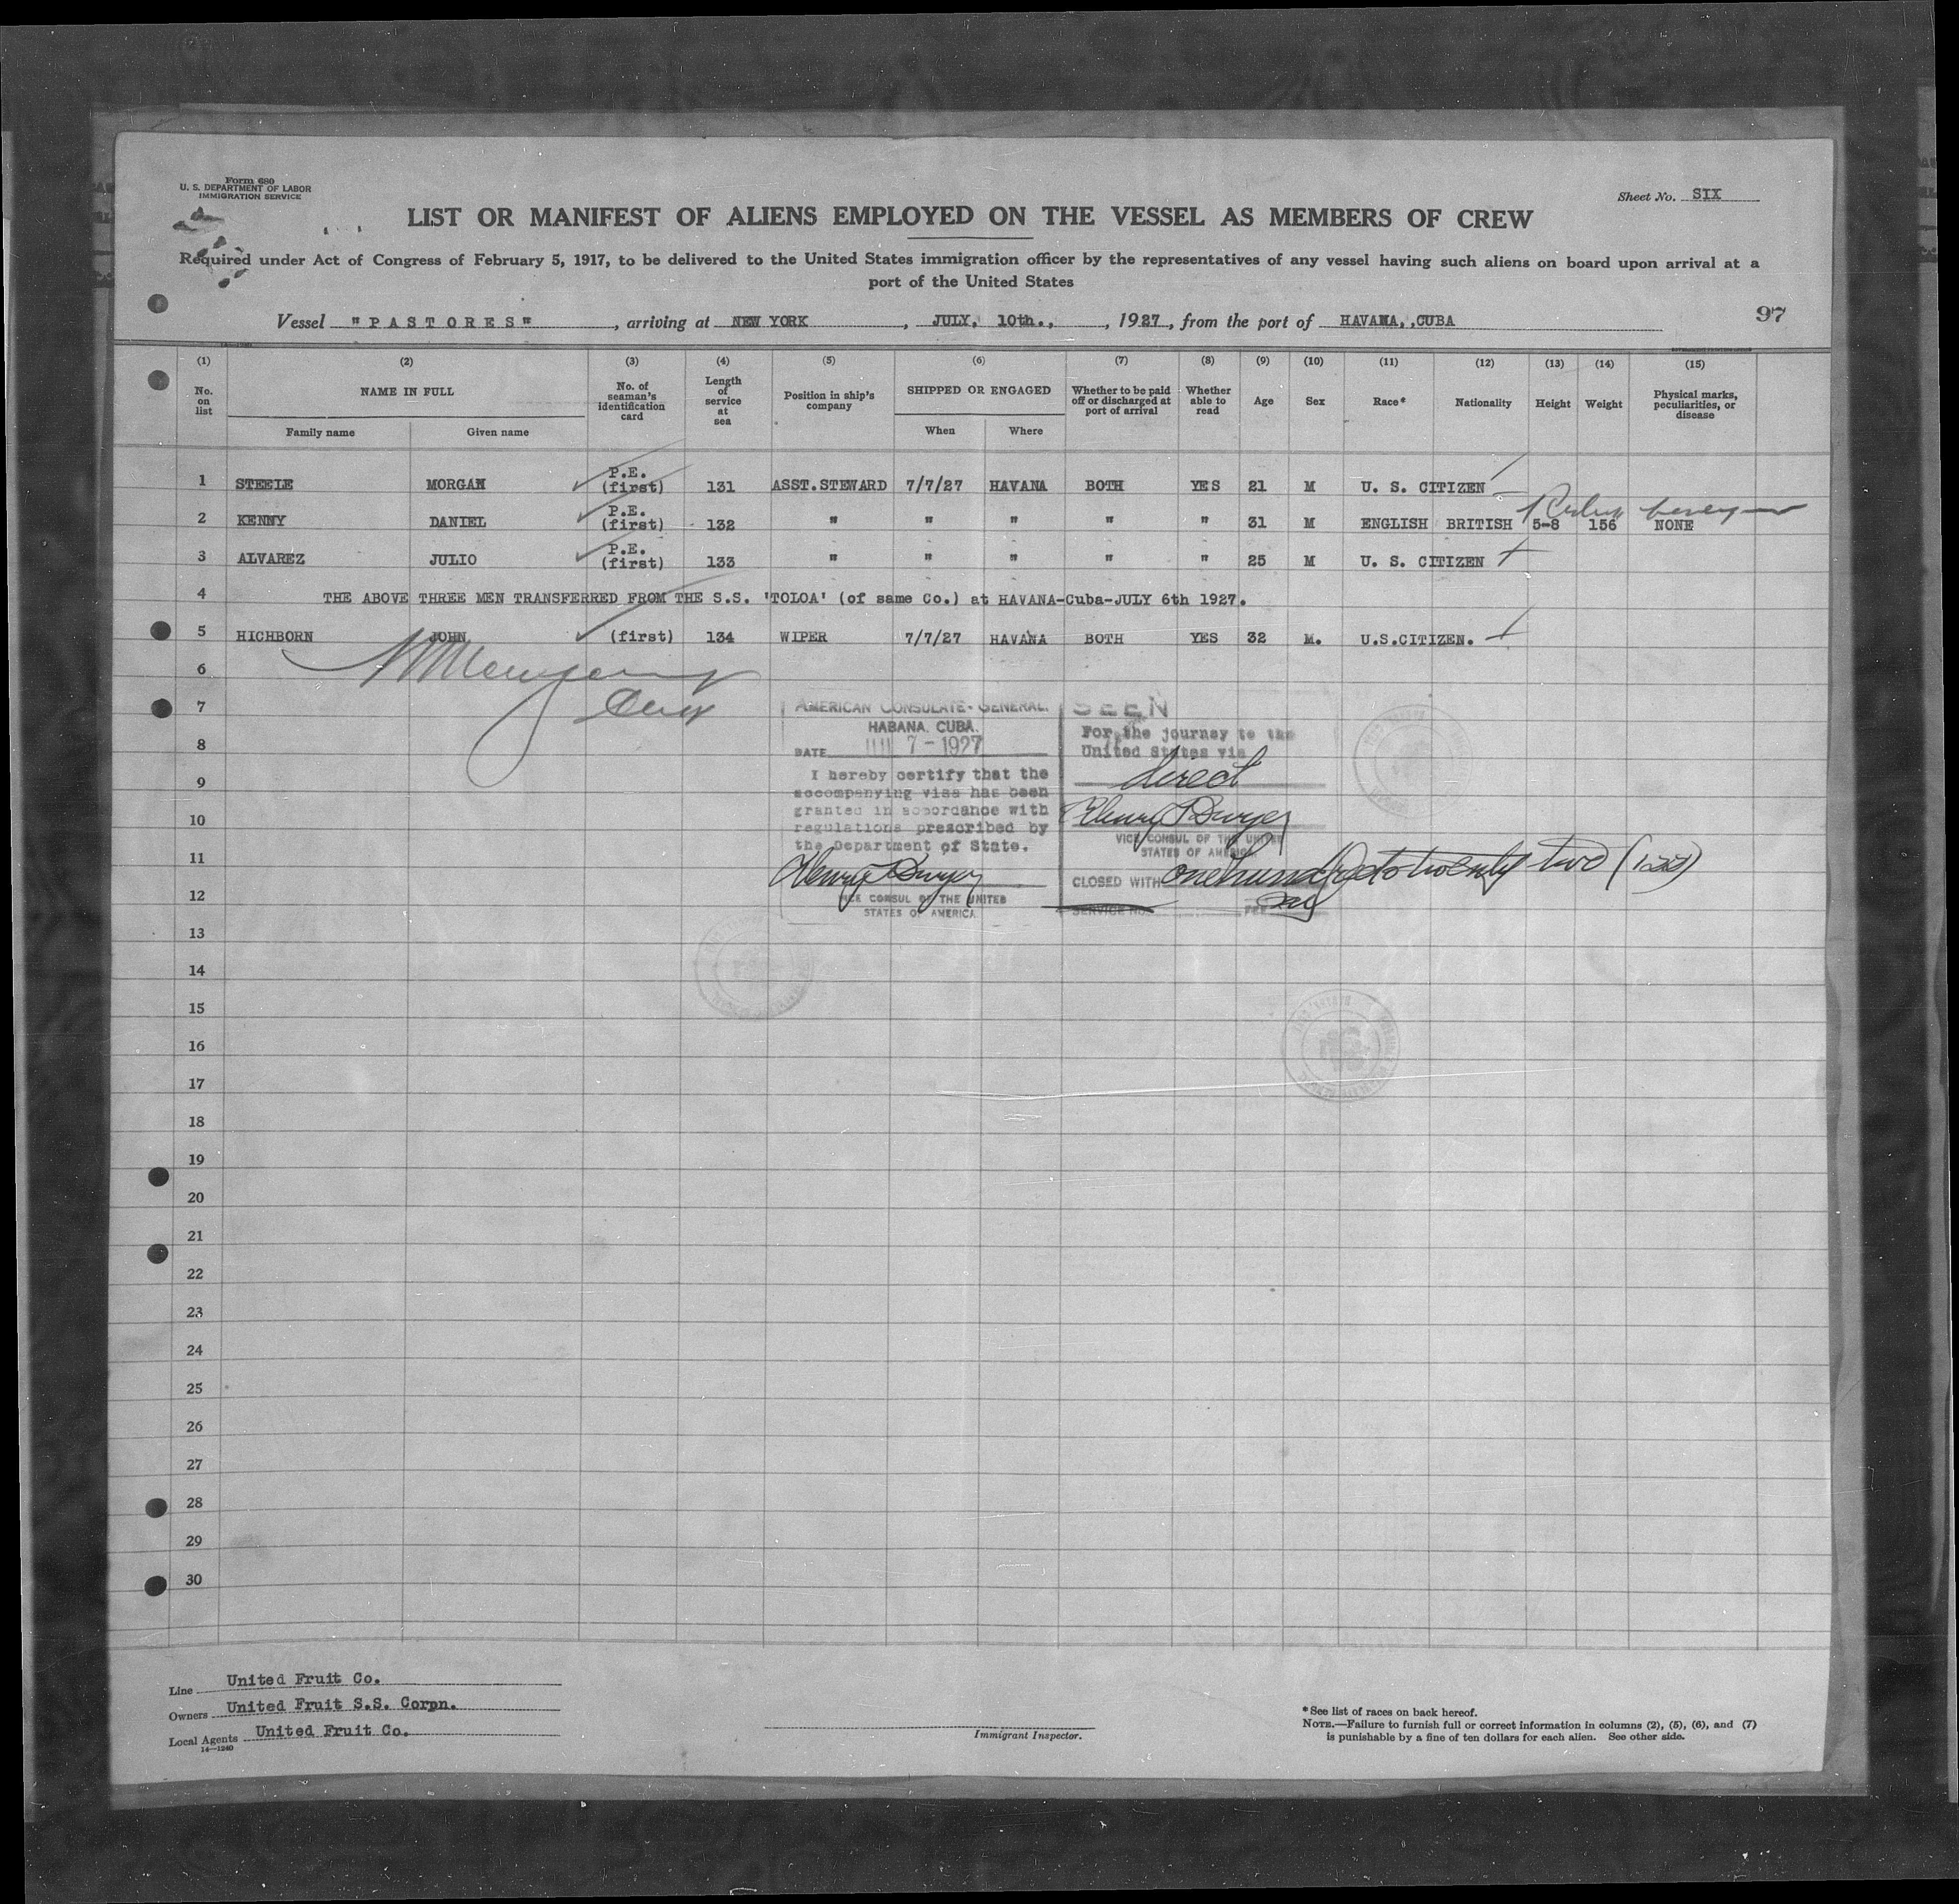 Form 680
U. S. DEPARTMENT OF LABOR
IMMIGRATION SERVICE
Sheet No. SIX
LIST OR MANIFEST OF ALIENS EMPLOYED ON THE VESSEL AS MEMBERS OF CREW
Required under Act of Congress of February 5, 1917, to be delivered to the United States immigration officer by the representatives of any vessel having such aliens on board upon arrival at a
port of the United States
Vessel "PASTORES", arriving at NEW YORK, JULY, 10th., , 1927, from the port of HAVANA, ,CUBA
97
(1) (2) (3) (4) (5) (6) (7) (8) (9) (10) (11) (12) (13) (14) (15)
No. on list
NAME IN FULL
Family name Given name
No. of seaman's identification card
Length of service at sea
Position in ship's company
SHIPPED OR ENGAGED
When Where
Whether to be paid off or discharged at port of arrival
Whether able to read
Age
Sex
Race*
Nationality
Height
Weight
Physical marks, peculiarities, or disease
1 STEELE MORGAN P.E. (first) 131 ASST.STEWARD 7/7/27 HAVANA BOTH YES 21 M U. S. CITIZEN
2 KENNY DANIEL P.E. (first) 132 " " " " " 31 M ENGLISH BRITISH 5-8 156 NONE
3 ALVAREZ JULIO P.E. (first) 133 " " " " " 25 M U. S. CITIZEN
4 THE ABOVE THREE MEN TRANSFERRED FROM THE S.S. 'TOLOA' (of same Co.) at HAVANA-Cuba-JULY 6th 1927.
5 HICHBORN JOHN (first) 134 WIPER 7/7/27 HAVANA BOTH YES 32 M. U.S.CITIZEN.
6
7
8
9
10
11
12
13
14
15
16
17
18
19
20
21
22
23
24
25
26
27
28
29
30
AMERICAN CONSULATE-GENERAL.
HABANA. CUBA.
DATE JUL 7-1927
I hereby certify that the
accompanying visa has been
granted in accordance with
regulations prescribed by
the Department of State.
Henry Dwyer
VICE CONSUL OF THE UNITED
STATES OF AMERICA
SEEN
For the journey to the
United States via
direct
Henry Dwyer
VICE CONSUL OF THE UNITED
STATES OF AMERICA
CLOSED WITH one hundred twenty two (122)
SERVICE NO. FEE
Line United Fruit Co.
Owners United Fruit S.S. Corpn.
Local Agents United Fruit Co.
14—1240
Immigrant Inspector.
*See list of races on back hereof.
NOTE.—Failure to furnish full or correct information in columns (2), (5), (6), and (7)
is punishable by a fine of ten dollars for each alien. See other side.